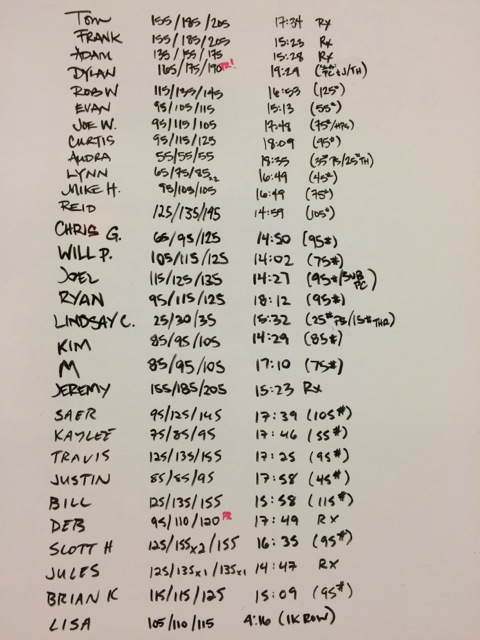 Tom 155/185/205 17:34 Rx
FRANK 155/185/205 15:23 Rx
ADAM 135/155/175 15:28 Rx
DYLAN 165/175/190 PR! 19:29
ROB W 115/135/145 16:53 (125#)
EVAN 95/105/115 15:13 (55#)
JOE W. 95/115/105 17:48 (75#/HPS)
CURTIS 95/115/125 18:09 (95#)
AUDRA 55/55/55 18:35 (35# PS/25# TH)
LYNN 65/75/85x2 16:49 (45#)
MIKE H. 95/105/105 16:49 (75#)
REID 125/135/145 14:59 (105#)
CHRIS G. 65/95/125 14:50 (95#)
WILL P. 105/115/125 14:02 (75#)
JOEL 115/125/135 14:27 (95#/SUB PC)
RYAN 95/115/125 18:12 (95#)
LINDSAY C. 25/30/35 15:32 (25# PS/15# THR)
KIM 85/95/105 14:29 (85#)
M 85/95/105 17:10 (75#)
JEREMY 155/185/205 15:23 Rx
SAER 95/125/145 17:39 (105#)
KAYLEE 75/85/95 17:46 (55#)
TRAVIS 125/135/155 17:25 (95#)
JUSTIN 85/85/95 17:58 (45#)
BILL 125/135/155 15:58 (115#)
DEB 95/110/120 PR 17:49 RX
SCOTT H 125/155x2/155 16:35 (95#)
JULES 125/135x1/135x1 14:47 RX
BRIAN K 115/115/125 15:09 (95#)
LISA 105/110/115 4:16 (1K ROW)